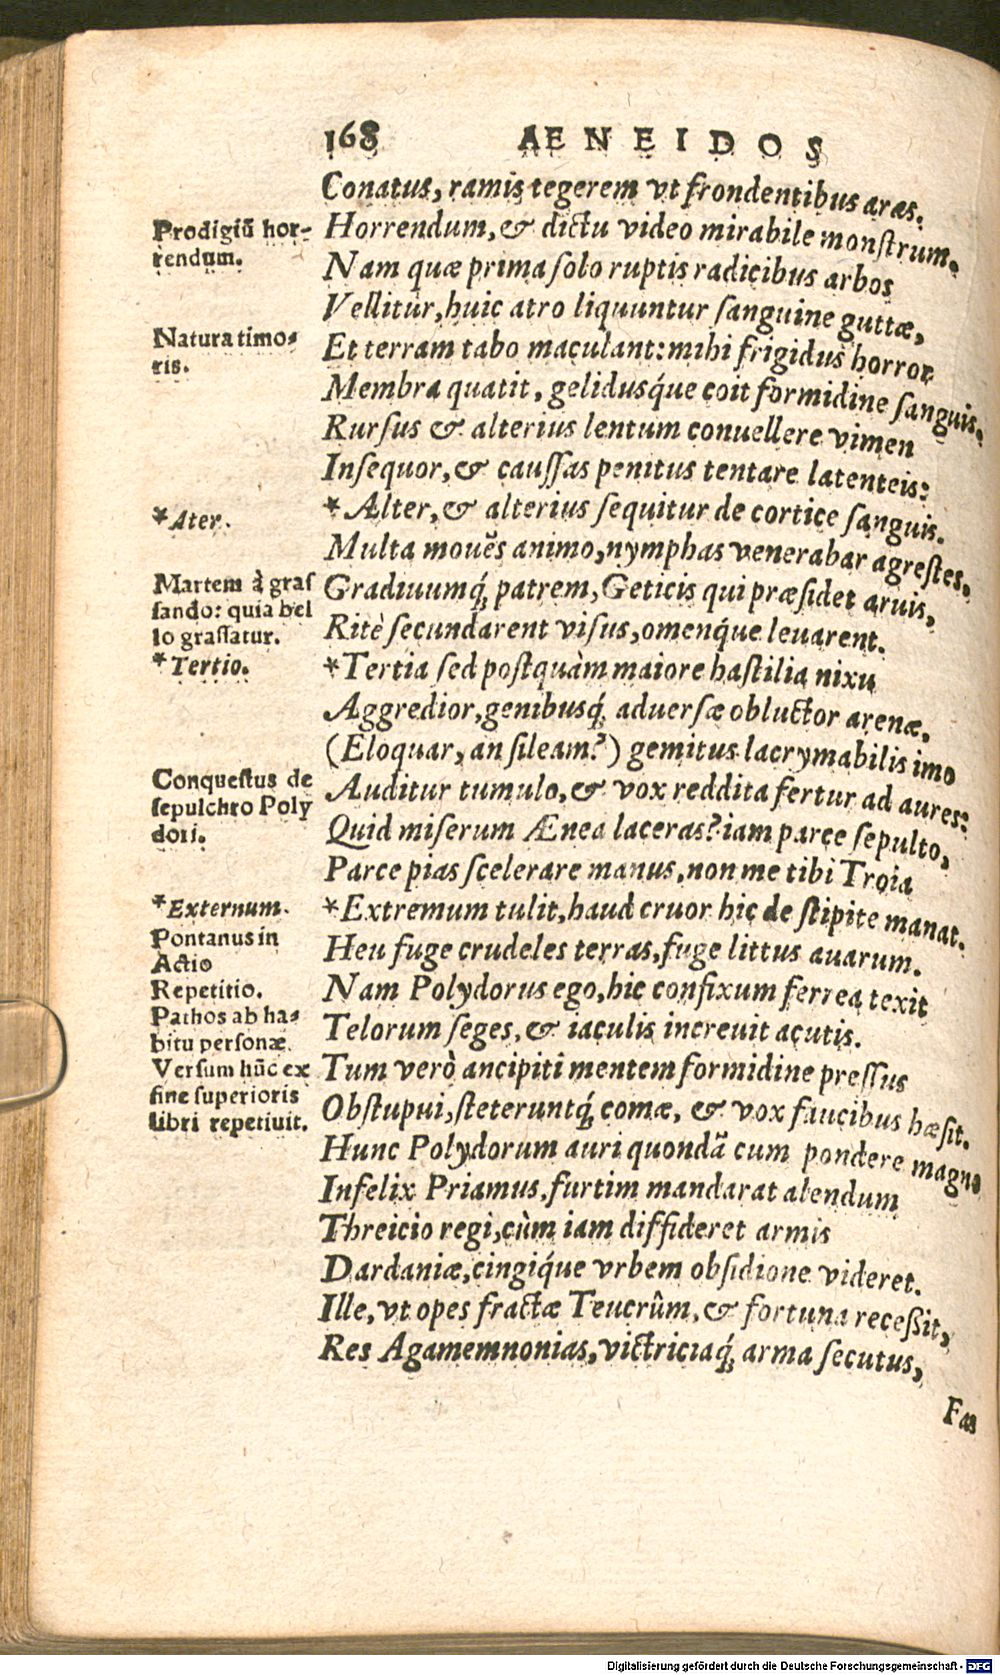 168 AENEIDOS
Conatus, ramis tegerem vt frondentibus aras.
Horrendum, & dictu video mirabile monſtrum.
Nam quæ prima ſolo ruptis radicibus arbos
Vellitur, huic atro liquuntur ſanguine guttæ,
Et terram tabo maculant: mihi frigidus horror
Membra quatit, gelidusq́ue coit formidine ſanguis.
Rurſus & alterius lentum conuellere vimen
Inſequor, & cauſſas penitus tentare latenteis:
*Alter, & alterius ſequitur de cortice ſanguis.
Multa mouẽs animo, nymphas venerabar agreſtes,
Gradiuumq́; patrem, Geticis qui præſidet aruis,
Ritè ſecundarent viſus, omenq́ue leuarent.
*Tertia ſed poſtquàm maiore haſtilia nixu
Aggredior, genibusq́; aduerſæ obluctor arenæ,
(Eloquar, an ſileam?) gemitus lacrymabilis imo
Auditur tumulo, & vox reddita fertur ad aures:
Quid miſerum Ænea laceras? iam parce ſepulto,
Parce pias ſcelerare manus, non me tibi Troia
*Extremum tulit, haud cruor hic de ſtipite manat.
Heu fuge crudeles terras, fuge littus auarum.
Nam Polydorus ego, hic confixum ferrea texit
Telorum ſeges, & iaculis increuit acutis.
Tum verò ancipiti mentem formidine preſſus
Obſtupui, ſteteruntq́; comæ, & vox faucibus hæſit.
Hunc Polydorum auri quondã cum pondere magno
Infelix Priamus, furtim mandarat alendum
Threicio regi, cùm iam diffideret armis
Dardaniæ, cingiq́ue vrbem obſidione videret.
Ille, vt opes fractæ Teucrûm, & fortuna receßit,
Res Agamemnonias, victriciaq́; arma ſecutus,
Fas
Prodigiũ hor-
rendum.
Natura timo-
ris.
*Ater.
Martem à graſ
ſando: quia bel
lo graſſatur.
*Tertio.
Conqueſtus de
ſepulchro Poly
dori.
*Externum.
Pontanus in
Actio
Repetitio.
Pathos ab ha-
bitu perſonæ.
Verſum hũc ex
fine ſuperioris
libri repetiuit.
Digitalisierung gefördert durch die Deutsche Forschungsgemeinschaft - DFG